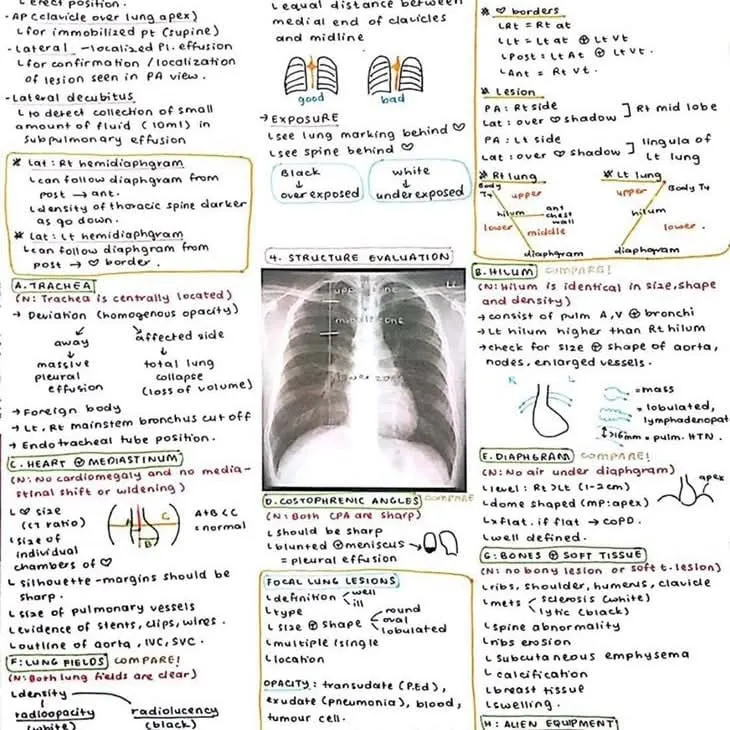 erect position.
- AP (clavicle over lung apex)
↳ for immobilized pt (supine)
- Lateral - localized Pl. effusion
↳ for confirmation / localization
of lesion seen in PA view.
- Lateral decubitus
↳ to detect collection of small
amount of fluid (10ml) in
subpulmonary effusion
* Lat: Rt hemidiaphgram
↳ can follow diaphgram from
post → ant.
↳ density of thoracic spine darker
as go down.
* Lat: Lt hemidiaphgram
↳ can follow diaphgram from
post → ♡ border.
A. TRACHEA
(N: Trachea is centrally located)
→ Deviation (homogenous opacity)
away
↓
massive
pleural
effusion
affected side
↓
total lung
collapse
(loss of volume)
→ Foreign body
→ Lt, Rt mainstem bronchus cut off
→ Endotracheal tube position.
C. HEART ⊕ MEDIASTINUM
(N: No cardiomegaly and no media-
stinal shift or widening)
↳ ♡ size
(CT ratio)
A C
B
A+B<C
= normal
↳ size of
individual
chambers of ♡
↳ silhouette - margins should be
sharp.
↳ size of pulmonary vessels
↳ evidence of stents, clips, wires.
↳ outline of aorta, IVC, SVC.
F: LUNG FIELDS COMPARE!
(N: Both lung fields are clear)
↳ density
↓
radioopacity
(white)
radiolucency
(black)
↳ equal distance between
medial end of clavicles
and midline
good bad
→ EXPOSURE
↳ see lung marking behind ♡
↳ see spine behind ♡
Black
↓
overexposed
white
↓
underexposed
4. STRUCTURE EVALUATION
zone
middle zone
lower zone
D. COSTOPHRENIC ANGLES COMPARE
(N: Both CPA are sharp)
↳ should be sharp
↳ blunted ⊕ meniscus →
= pleural effusion
FOCAL LUNG LESIONS
↳ definition < well
ill
↳ type
↳ size ⊕ shape < round
oval
lobulated
↳ multiple / single
↳ location
OPACITY: transudate (P.Ed),
exudate (pneumonia), blood,
tumour cell.
* ♡ borders
↳ Rt = Rt at
↳ Lt = Lt at ⊕ Lt Vt
↳ Post = Lt At ⊕ Lt Vt.
↳ Ant = Rt Vt.
* Lesion
PA: Rt side
Lat: over ♡ shadow ] Rt mid lobe
PA: Lt side
Lat: over ♡ shadow ] lingula of
Lt lung
* Rt lung
Body
T4
upper
hilum
ant
chest
wall
lower
middle
diaphgram
* Lt lung
upper
Body T4
hilum
lower.
diaphgram
B. HILUM COMPARE!
(N: Hilum is identical in size, shape
and density)
→ consist of pulm A, V ⊕ bronchi
→ Lt hilum higher than Rt hilum
→ check for size ⊕ shape of aorta,
nodes, enlarged vessels.
R L
= mass
= lobulated,
lymphadenopat
>16mm = pulm. HTN.
E. DIAPHGRAM COMPARE!
(N: No air under diaphgram)
↳ level: Rt > Lt (1-2cm)
apex
↳ dome shaped (mp: apex)
↳ x flat. if flat → COPD.
↳ well defined.
G: BONES ⊕ SOFT TISSUE
(N: no bony lesion or soft t. lesion)
↳ ribs, shoulder, humerus, clavicle
↳ mets < sclerosis (white)
lytic (black)
↳ spine abnormality
↳ ribs erosion
↳ subcutaneous emphysema
↳ calcification
↳ breast tissue
↳ swelling.
H: ALIEN EQUIPMENT